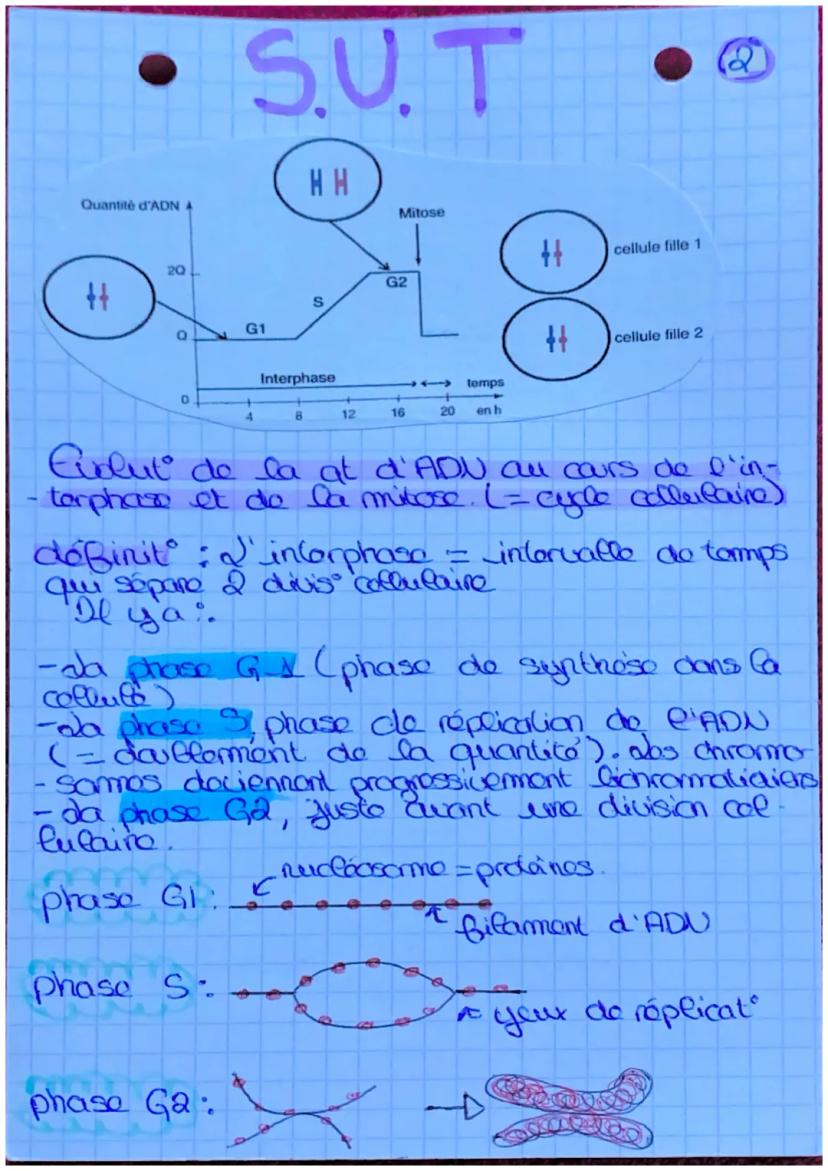 S.V.T
2
Quantité d'ADN
Mitose
cellule fille 1
2Q
G2
S
Q
G1
cellule fille 2
Interphase
temps
0
4 8 12 16 20 en h
Évolut° de la qt d'ADN au cours de l'in-
-terphase et de la mitose. (= cycle cellulaire)
définit° : L'interphase = intervalle de temps
qui sépare 2 divis° cellulaire
Il y a :.
-La phase G1 (phase de synthèse dans la
cellule)
-La phase S, phase de réplication de l'ADN
(= doublement de la quantité). Les chromo-
-somes deviennent progressivement bichromatidiens
- La phase G2, juste avant une division cel-
lulaire.
nucléosome = protéines.
phase G1 :
filament d'ADN
phase S :
yeux de réplicat°
phase G2 :